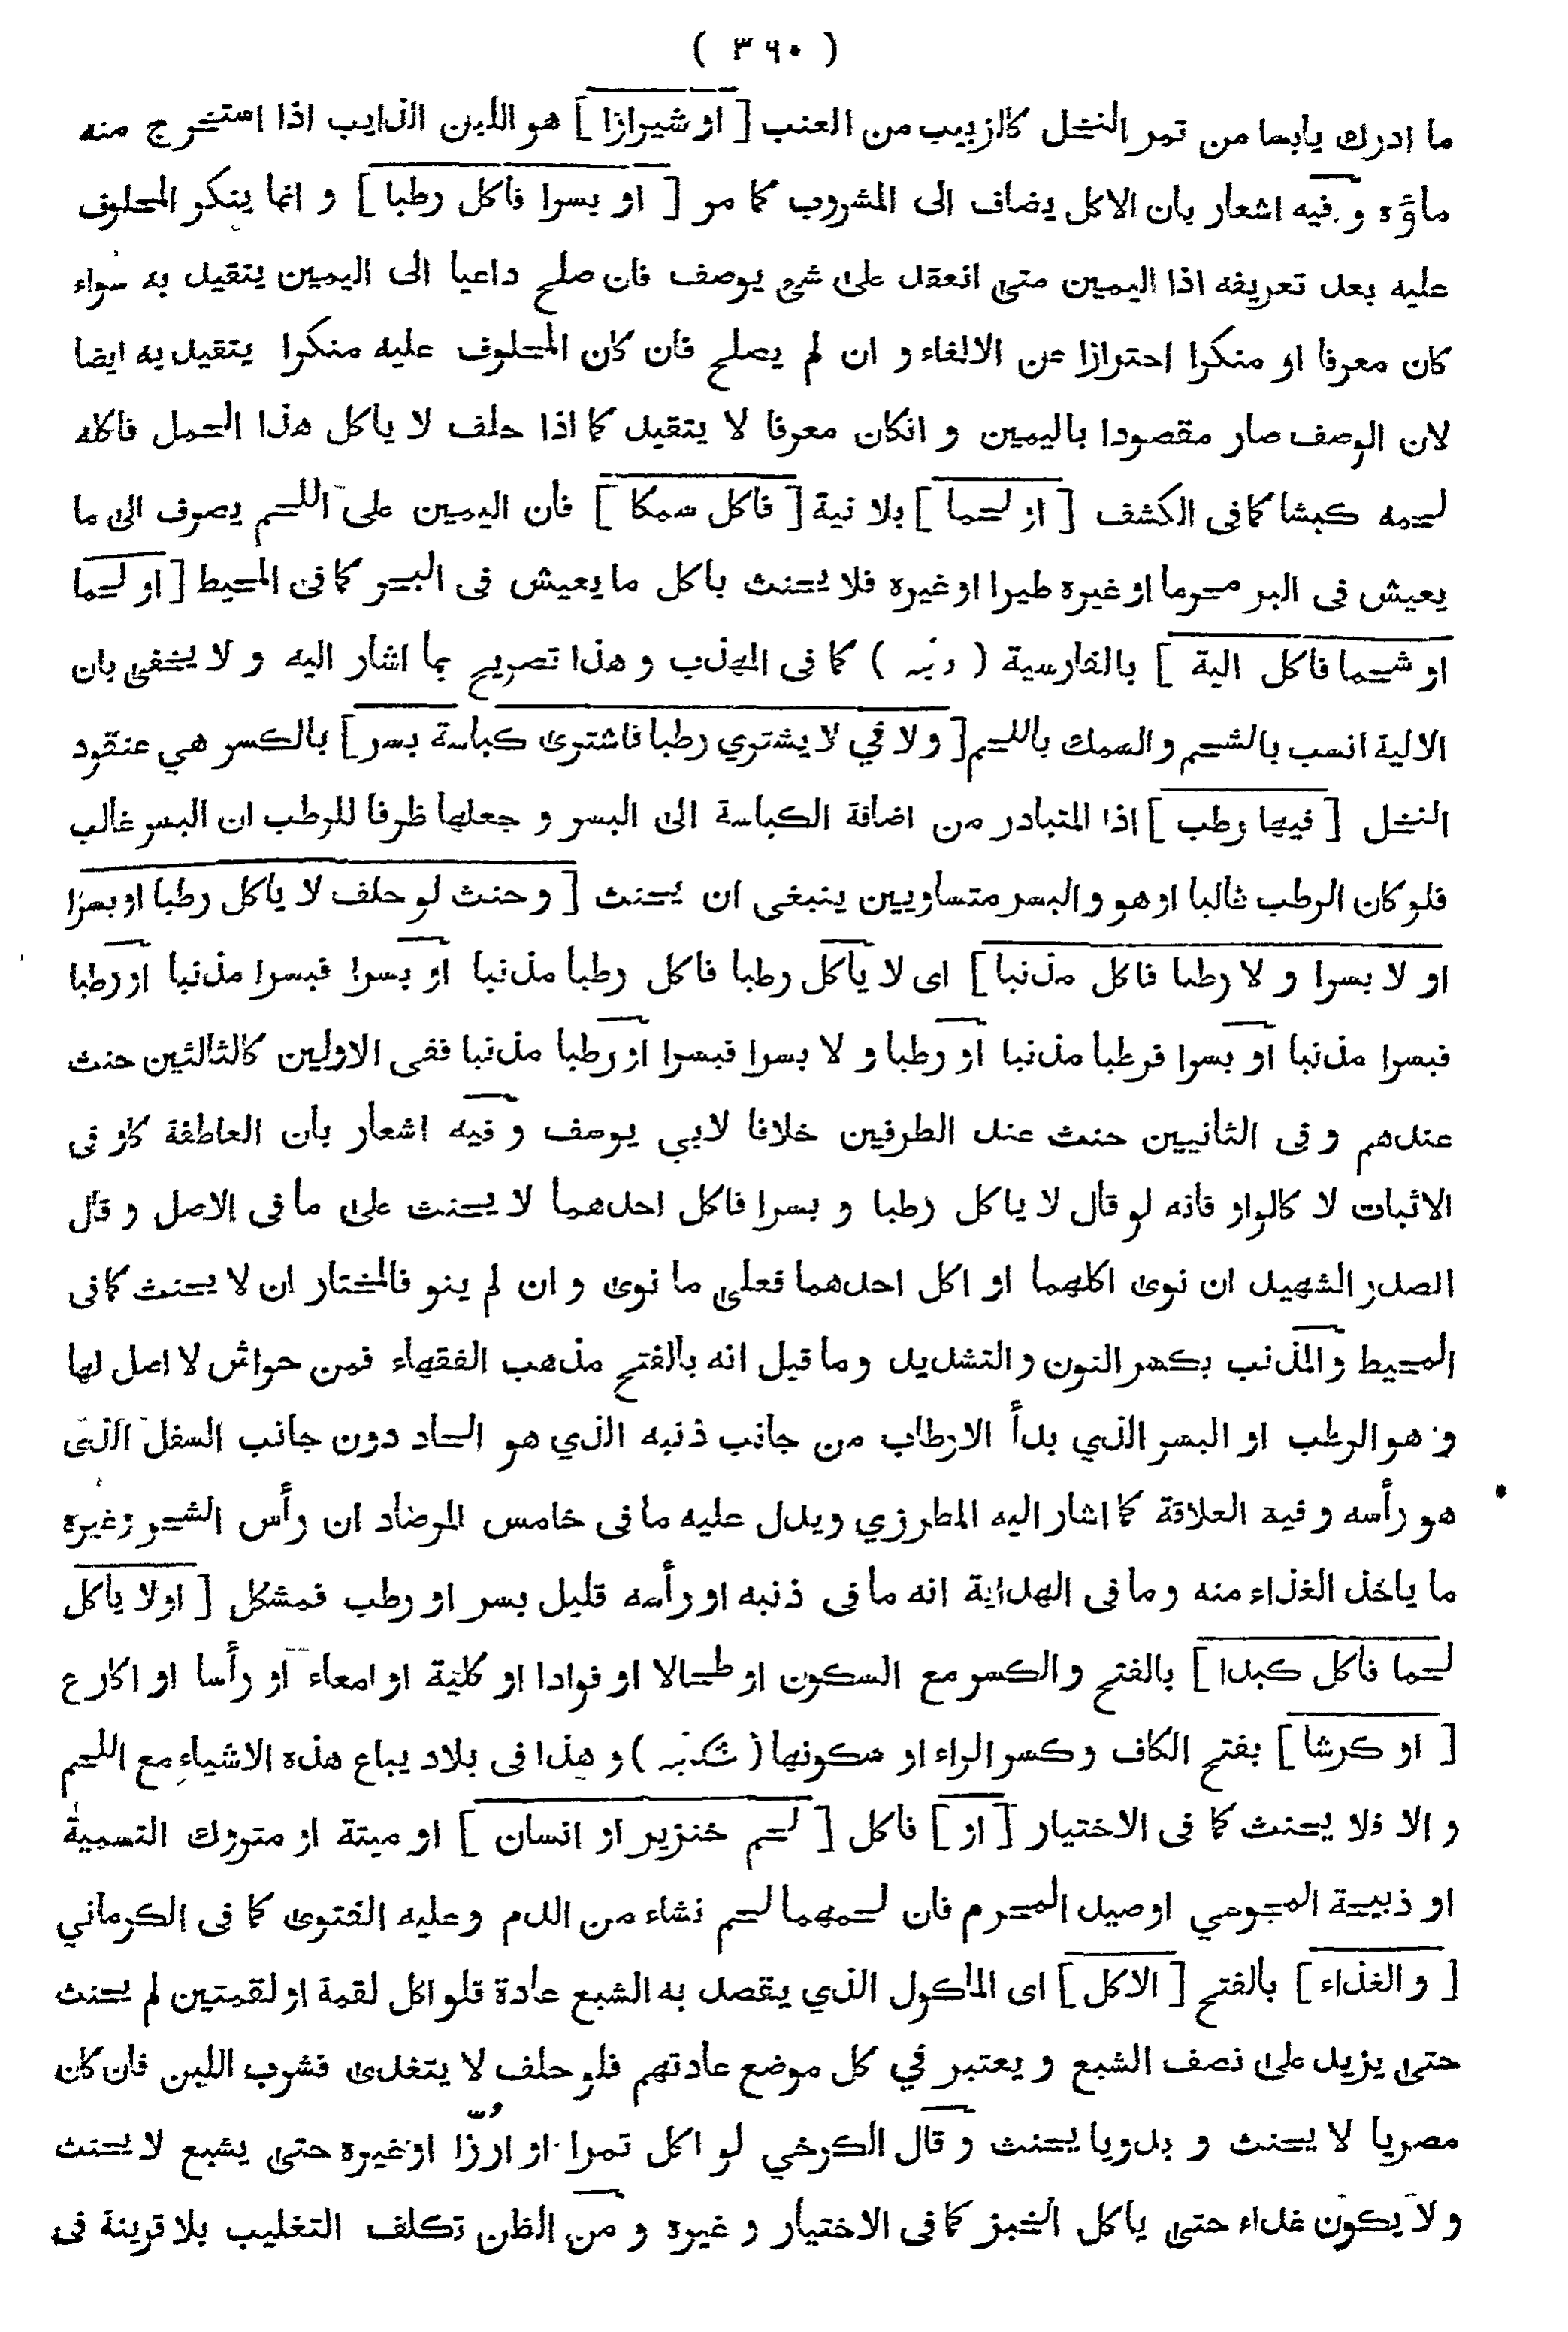 ( ٣٦٠ )
ما ادرك يابسا من تمر النخل كالزبيب من العنب [ او شيرازا ] هو اللبن الذايب اذا استخرج منه
ماؤه و فيه اشعار بان الاكل يضاف الى المشروب كما مر [ او بسرا فاكل رطبا ] و انما ينكر المحلوف
عليه بعد تعريفه اذا اليمين متى انعقد على شئ يوصف فان صلح داعيا الى اليمين يتقيد به سواء
كان معرفا او منكرا احترازا عن الالغاء و ان لم يصلح فان كان المحلوف عليه منكرا يتقيد به ايضا
لان الوصف صار مقصودا باليمين و انكان معرفا لا يتقيد كما اذا حلف لا ياكل هذا الحمل فاكله
لحمه كبشا كما فى الكشف [ او لحما ] بلا نية [ فاكل سمكا ] فان اليمين على اللحم يصرف الى ما
يعيش فى البر محرما او غيره طيرا او غيره فلا يحنث باكل ما يعيش فى البحر كما فى المحيط [ او لحما
او شحما فاكل الية ] بالفارسية ( دنبه ) كما فى المهذب و هذا تصريح بما اشار اليه و لا يخفى بان
الالية انسب بالشحم و السمك باللحم [ و لا في لا يشتري رطبا فاشترى كباسة بسر ] بالكسر هي عنقود
النخل [ فيها رطب ] اذا المتبادر من اضافة الكباسة الى البسر و جعلها ظرفا للرطب ان البسر غالب
فلو كان الرطب غالبا او هو و البسر متساويين ينبغى ان يحنث [ و حنث لو حلف لا ياكل رطبا او بسرا
او لا بسرا و لا رطبا فاكل مذنبا ] اى لا ياكل رطبا فاكل رطبا مذنبا او بسرا فبسرا مذنبا او رطبا
فبسرا مذنبا او بسرا فرطبا مذنبا او رطبا و لا بسرا فبسرا او رطبا مذنبا ففى الاولين كالثالثين حنث
عندهم و فى الثانيين حنث عند الطرفين خلافا لابي يوسف و فيه اشعار بان العاطفة كاو فى
الاثبات لا كالواو فانه لو قال لا ياكل رطبا و بسرا فاكل احدهما لا يحنث على ما فى الاصل و قال
الصدر الشهيد ان نوى اكلهما او اكل احدهما فعلى ما نوى و ان لم ينو فالمختار ان لا يحنث كما فى
المحيط و المذنب بكسر النون و التشديد و ما قيل انه بالفتح مذهب الفقهاء فمن حواش لا اصل لها
و هو الرطب او البسر الذي بدأ الارطاب من جانب ذنبه الذي هو الحاد دون جانب السفل الذى
هو رأسه و فيه العلاقة كما اشار اليه المطرزي و يدل عليه ما فى خامس المرضاد ان رأس الشجر و غيره
ما ياخذ الغذاء منه و ما فى الهداية انه ما فى ذنبه او رأسه قليل بسر او رطب فمشكل [ او لا ياكل
لحما فاكل كبدا ] بالفتح و الكسر مع السكون او طحالا او فوادا او كلية او امعاء او رأسا او اكارع
[ او كرشا ] بفتح الكاف و كسر الراء او سكونها ( شكنبه ) و هذا فى بلاد يباع هذه الاشياء مع اللحم
و الا فلا يحنث كما فى الاختيار [ او ] فاكل [ لحم خنزير او انسان ] او ميتة او متروك التسمية
او ذبيحة المجوسي او صيد المحرم فان لحمهما لحم نشاء من الدم و عليه الفتوى كما فى الكرماني
[ و الغذاء ] بالفتح [ الاكل ] اى الماكول الذي يقصد به الشبع عادة فلو اكل لقمة او لقمتين لم يحنث
حتى يزيد على نصف الشبع و يعتبر في كل موضع عادتهم فلو حلف لا يتغدى فشرب اللبن فان كان
مصريا لا يحنث و بدويا يحنث و قال الكرخي لو اكل تمرا او ارُزّا او غيره حتى يشبع لا يحنث
و لا يكون غداء حتى ياكل الخبز كما فى الاختيار و غيره و من الظن تكلف التغليب بلا قرينة فى